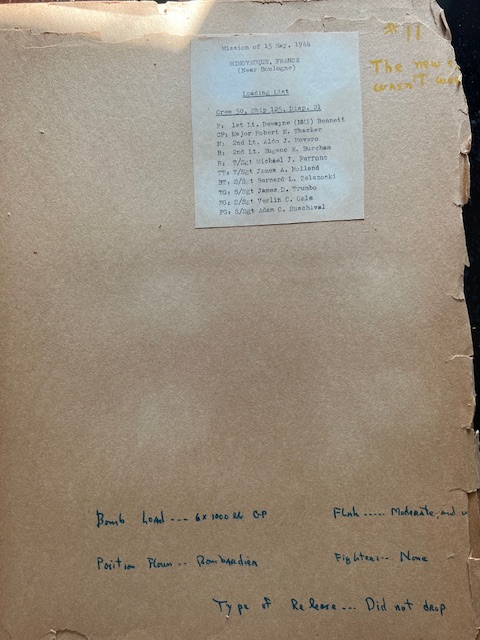 Mission of 15 May, 1944
MIMOYECQUE, FRANCE
(Near Boulogne)
Loading List
Crew 50, Ship 125, Disp. 21
P: 1st Lt. Dewayne (NMI) Bennett
CP: Major Robert E. Thacker
N: 2nd Lt. Aldo J.
B: 2nd Lt. Eugene E. Burcham
R: T/Sgt Michael J. Ferrone
TT: T/Sgt James A. Holland
BT: S/Sgt Bernard L.
TG: S/Sgt James D. Trumbo
FG: S/Sgt Verlin C. Gale
FG: S/Sgt Adam C.
# 11
The new
wasn't
Bomb Load --- 6 x 1000 lb GP
Flak ----- Moderate, and
Position Flown -- Bombardier
Fighters -- None
Type of Release --- Did not drop